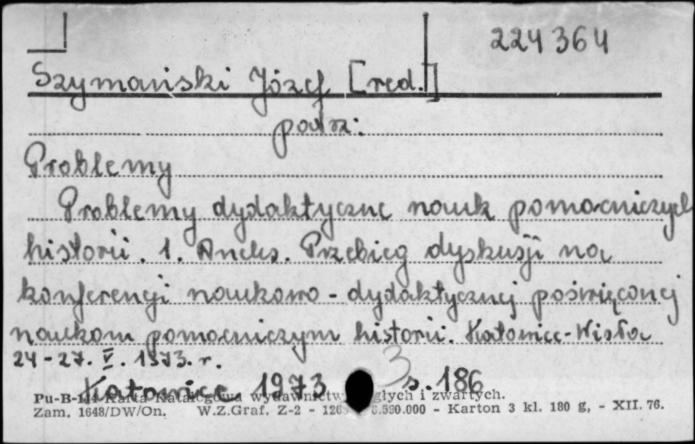 224364
Szymański Józef [red.]
patrz:
Problemy
Problemy dydaktyczne nauk pomocniczych
historii. 1. Aneks. Przebieg dyskusji na
konferencji naukowo-dydaktycznej poświęconej
naukom pomocniczym historii. Katowice-Wisła
24-27. V. 1973. r.
Katowice 1973 s. 186
3
Pu-B-1 Karta Katalogowa wydawnictw ciągłych i zwartych.
Zam. 1648/DW/On. W.Z.Graf. Z-2 - 126 .590.000 - Karton 3 kl. 180 g, - XII. 76.